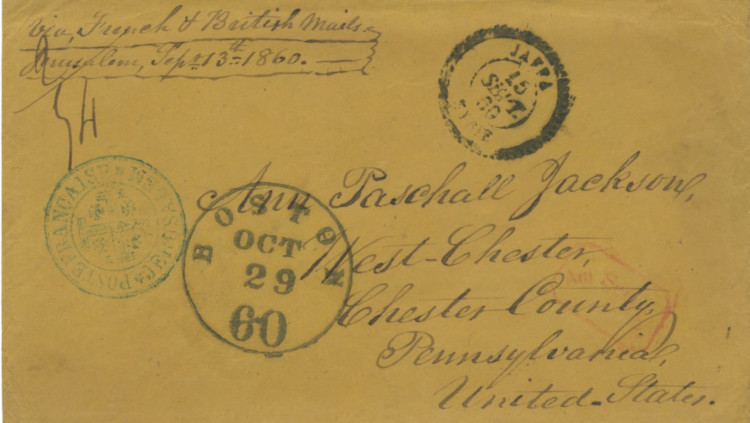 Via, French & British Mails.
Jerusalem, Sept. 13th 1860.
JAFFA
15
SEPT.
60
SYRIE
POSTE FRANÇAISE
BOSTON
OCT
29
60
Ann Paschall Jackson,
West-Chester,
Chester County,
Pennsylvania,
United-States.